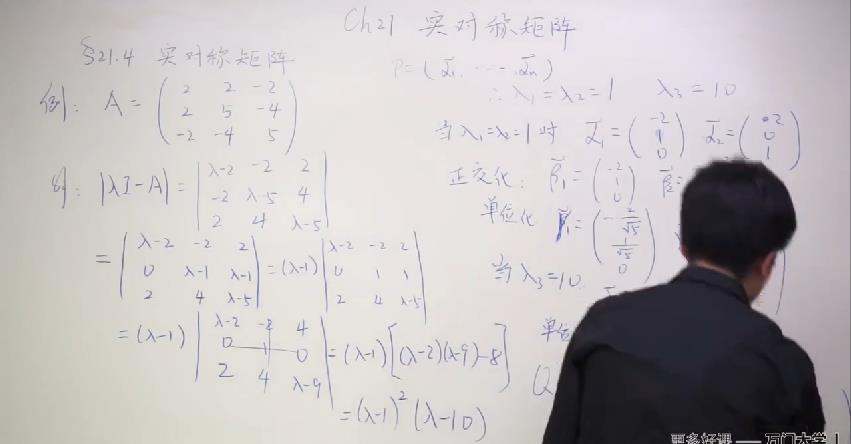 Ch21 实对称矩阵
§21.4 实对称矩阵
例: A = ( 2 2 -2
2 5 -4
-2 -4 5 )
解: |λI-A| = | λ-2 -2 2
-2 λ-5 4
2 4 λ-5 |
= | λ-2 -2 2
0 λ-1 λ-1
2 4 λ-5 | = (λ-1) | λ-2 -2 2
0 1 1
2 4 λ-5 |
= (λ-1) | λ-2 -2 4
0 1 0
2 4 λ-9 | = (λ-1)[(λ-2)(λ-9)-8]
= (λ-1)² (λ-10)
P = (α₁, ⋯, αₙ)
∴ λ₁ = λ₂ = 1 λ₃ = 10
当 λ₁=λ₂=1 时 α₁ = ( -2
1
0 ) α₂ = ( 2
0
1 )
正交化: β₁ = ( -2
1
0 ) β₂ =
单位化 = ( -2/√5
1/√5
0 )
当 λ₃=10
单位
Q
更多好课 —— 万门大学